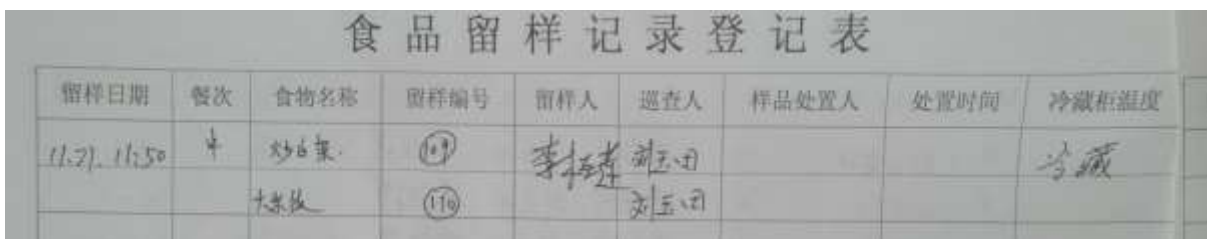 食品留样记录登记表
留样日期 餐次 食物名称 留样编号 留样人 巡查人 样品处置人 处置时间 冷藏柜温度
11.21. 11:50 中 炒白菜. 109 李 刘玉田 冷藏
大米饭 110 刘玉田